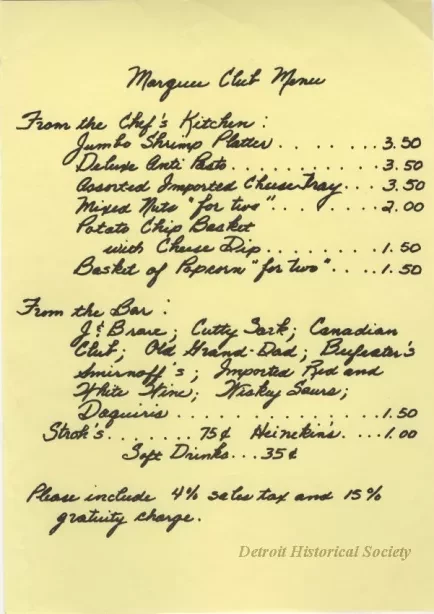 Marquee Club Menu
From the Chef's Kitchen:
Jumbo Shrimp Platter . . . . . . . . 3.50
Deluxe Anti Pasto . . . . . . . . . . . 3.50
Assorted Imported Cheese Tray . . . 3.50
Mixed Nuts "for two" . . . . . . . 2.00
Potato Chip Basket
with Cheese Dip . . . . . . . . . 1.50
Basket of Popcorn "for two" . . . . 1.50
From the Bar:
J & B rare; Cutty Sark; Canadian
Club; Old Grand-Dad; Beefeater's
Smirnoff's; Imported Red and
White Wine; Wiskey Sours;
Daquiris . . . . . . . . . . . . . . . 1.50
Stroh's . . . . . . . 75¢ Heinekins . . . . 1.00
Soft Drinks . . . 35¢
Please include 4% sales tax and 15%
gratuity charge.
Detroit Historical Society